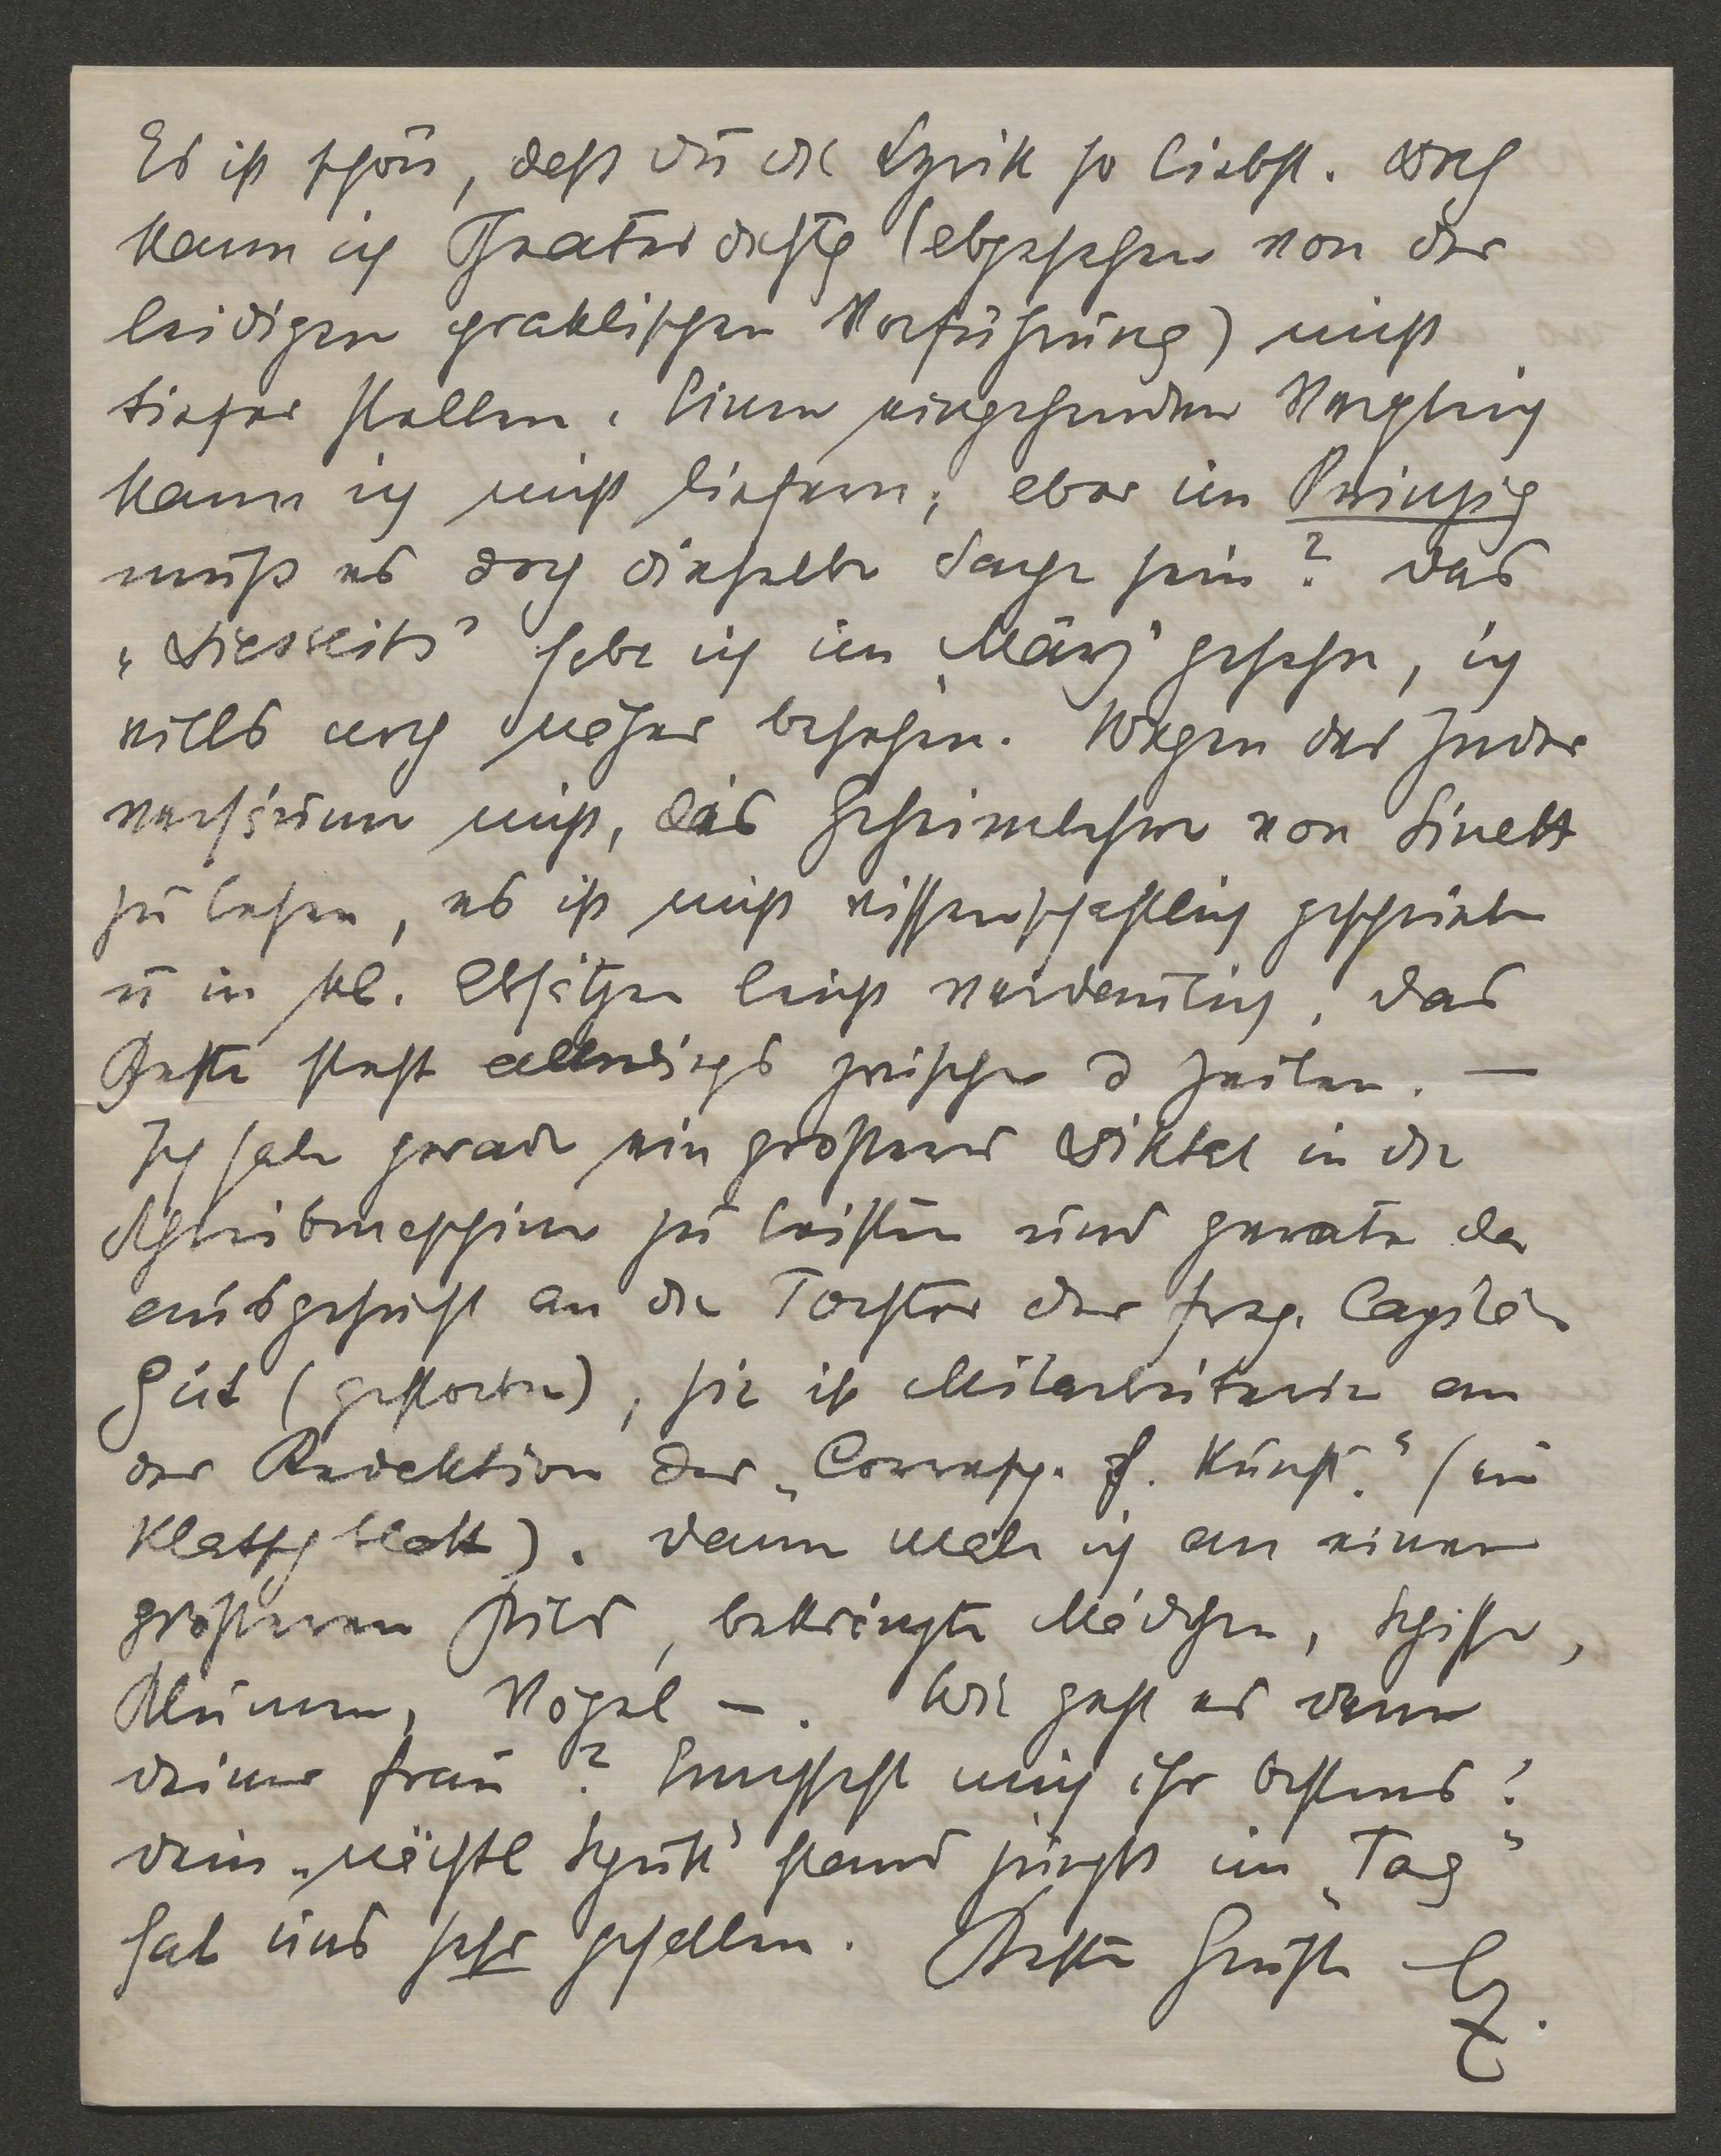 Es ist schön, daß du die Lyrik so liebst. Doch
kann ich Theaterdichtg (abgesehen von der
leidigen praktischen Vorführung) nicht
tiefer stellen. Einen eingehenden Vergleich
kann ich nicht liefern, aber im Prinzip
muß es doch dieselbe Sache sein? Das
„Diesseits" habe ich im „März" gesehen, ich
wills noch näher besehen. Wegen der Inder
versäume nicht, das Geheimlehre von Sinett
zu lesen, es ist nicht wissenschaftlich geschrieben
u in kl. Absätzen leicht verdaulich, das
Beste steht allerdings zwischen d Zeilen. —
Ich habe gerade ein größeres Diktat in die
Schreibmaschine zu leisten und gerate da
ausgesucht an die Tochter der sog. Capitän
Gut (gestorben), sie ist Mitarbeiterin an
der Redaktion der „Corresp. f. Kunst." (ein
Klatschblatt). Dann male ich an einem
größeren Bild, bekränzte Mädchen, Schiffe,
Blumen, Vögel —. Wie geht es denn
deiner Frau? Empfiehl mich ihr bestens!
Dein „nächtl Spuk" stand jüngst im „Tag"
hat uns sehr gefallen. Beste Grüße